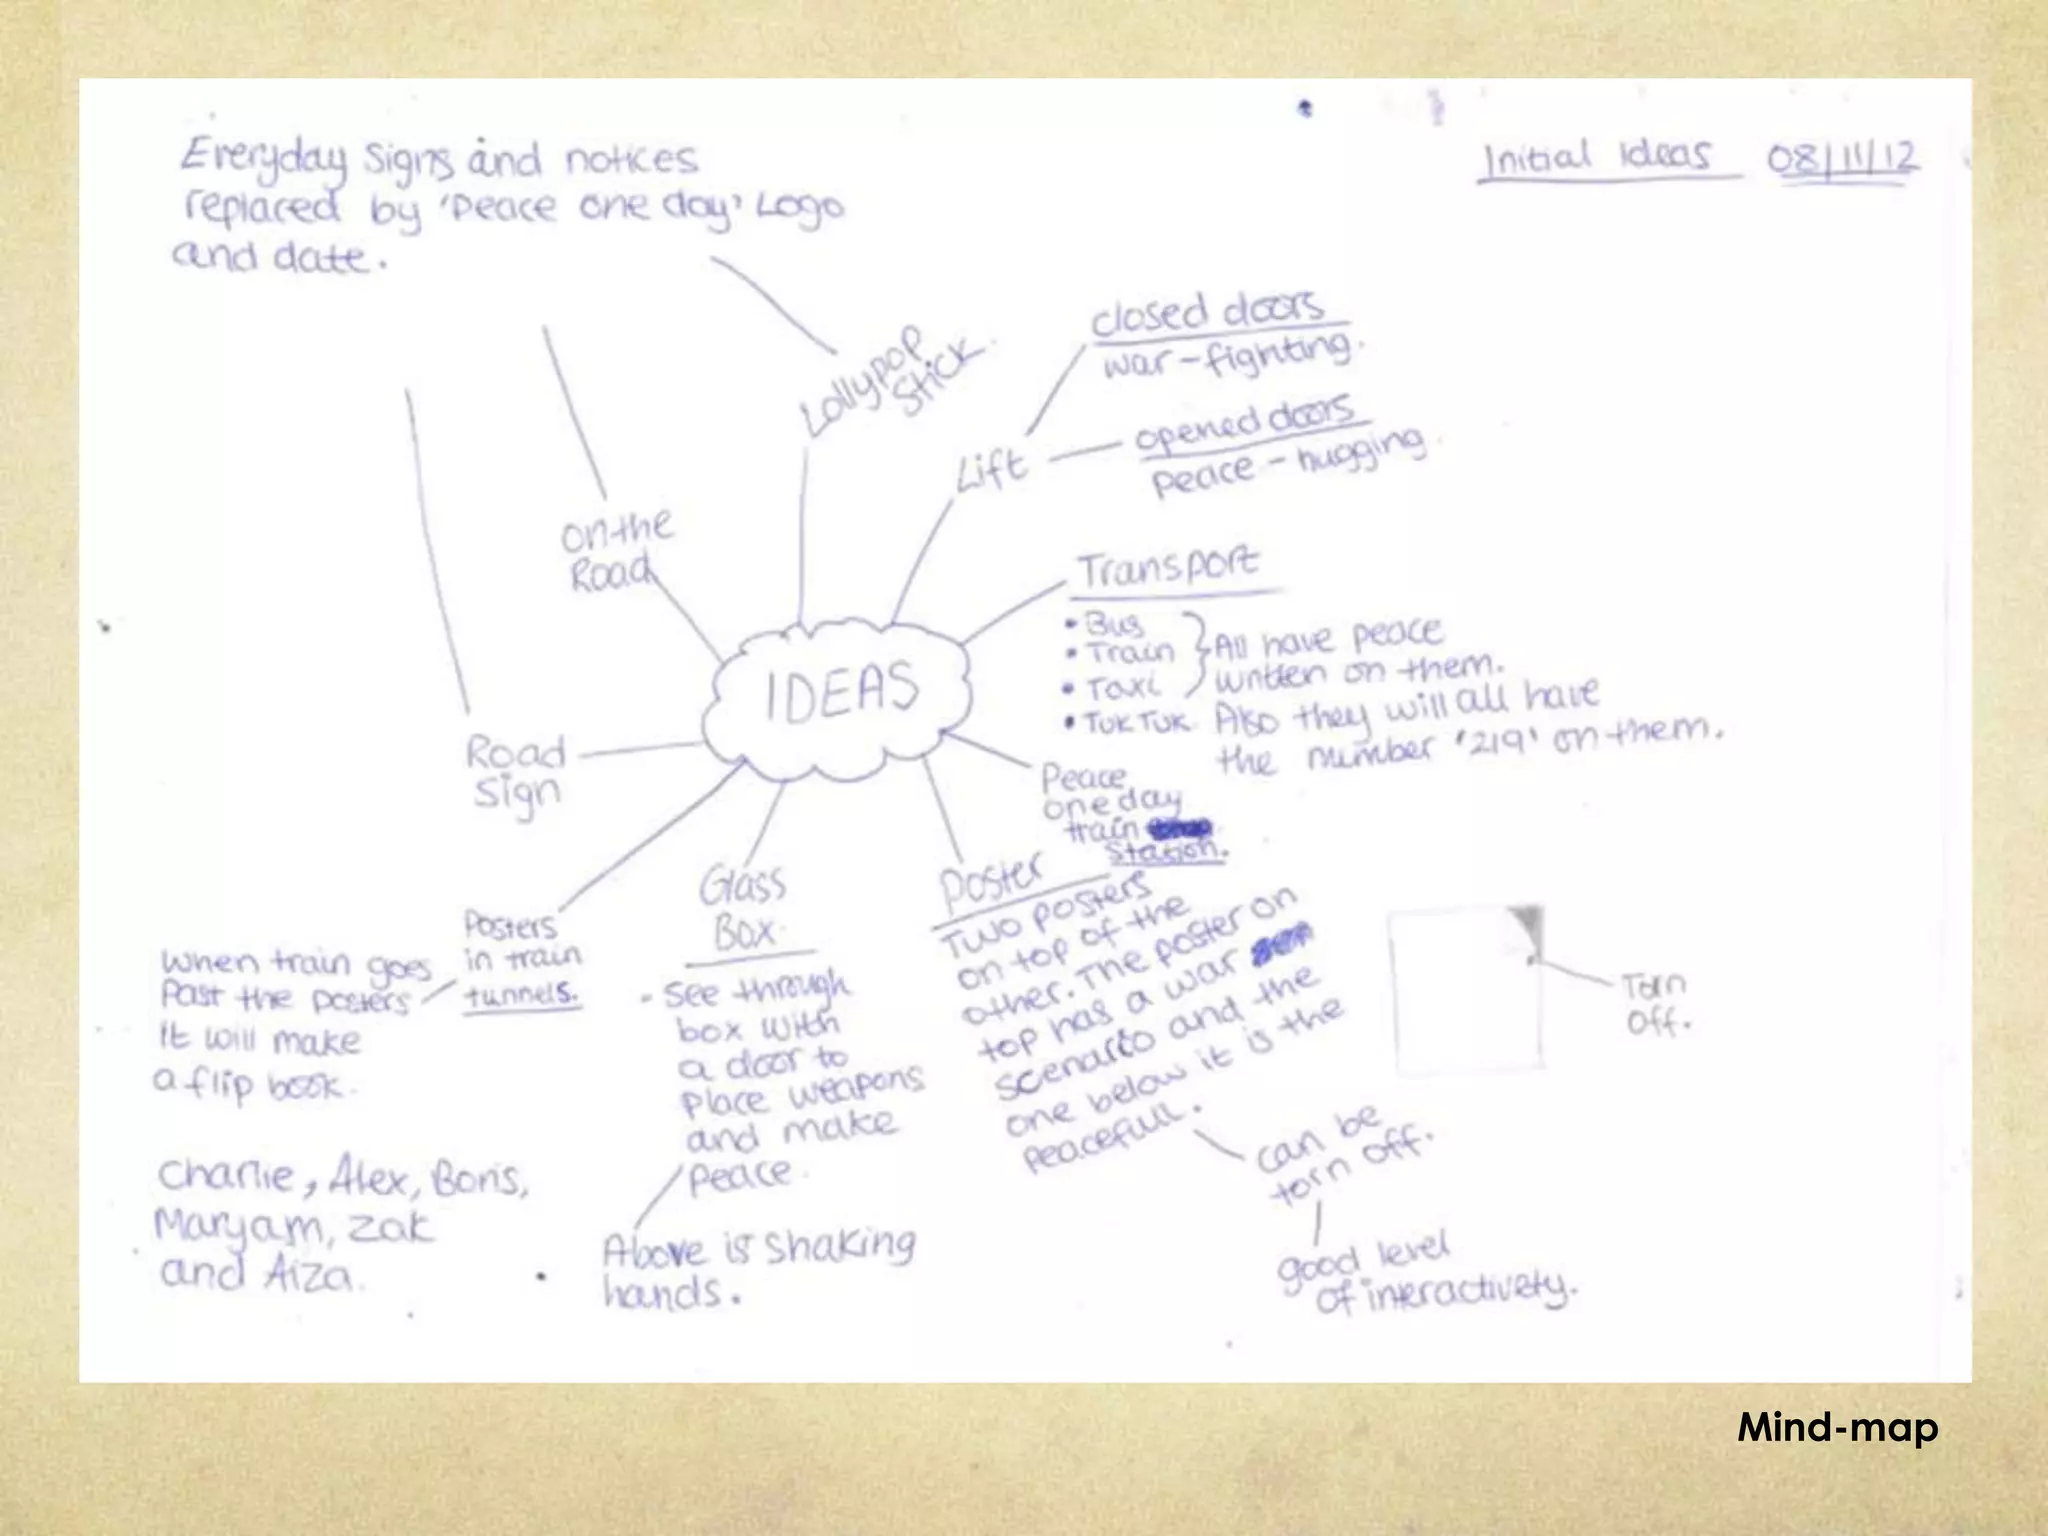 Initial Ideas 08/11/12
Everyday signs and notices
replaced by 'peace one day' Logo
and date.
Lollypop
Stick.
on the
Road
Road
Sign
Lift
closed doors
war - fighting.
opened doors
peace - hugging.
Transport
• Bus
• Train
• Taxi
• Tuk Tuk.
All have peace
written on them.
Also they will all have
the number '219' on them.
IDEAS
Peace
one day
train
Station.
Poster
Two posters
on top of the
other. The poster on
top has a war
scenario and the
one below it is the
peacefull.
can be
torn off.
good level
of interactivety.
Torn
off.
Glass
Box.
- see through
box with
a door to
place weapons
and make
peace.
Above is shaking
hands.
Posters
in train
tunnels.
When train goes
past the posters
it will make
a flip book.
Charlie, Alex, Boris,
Maryam, Zak
and Aiza.
Mind-map